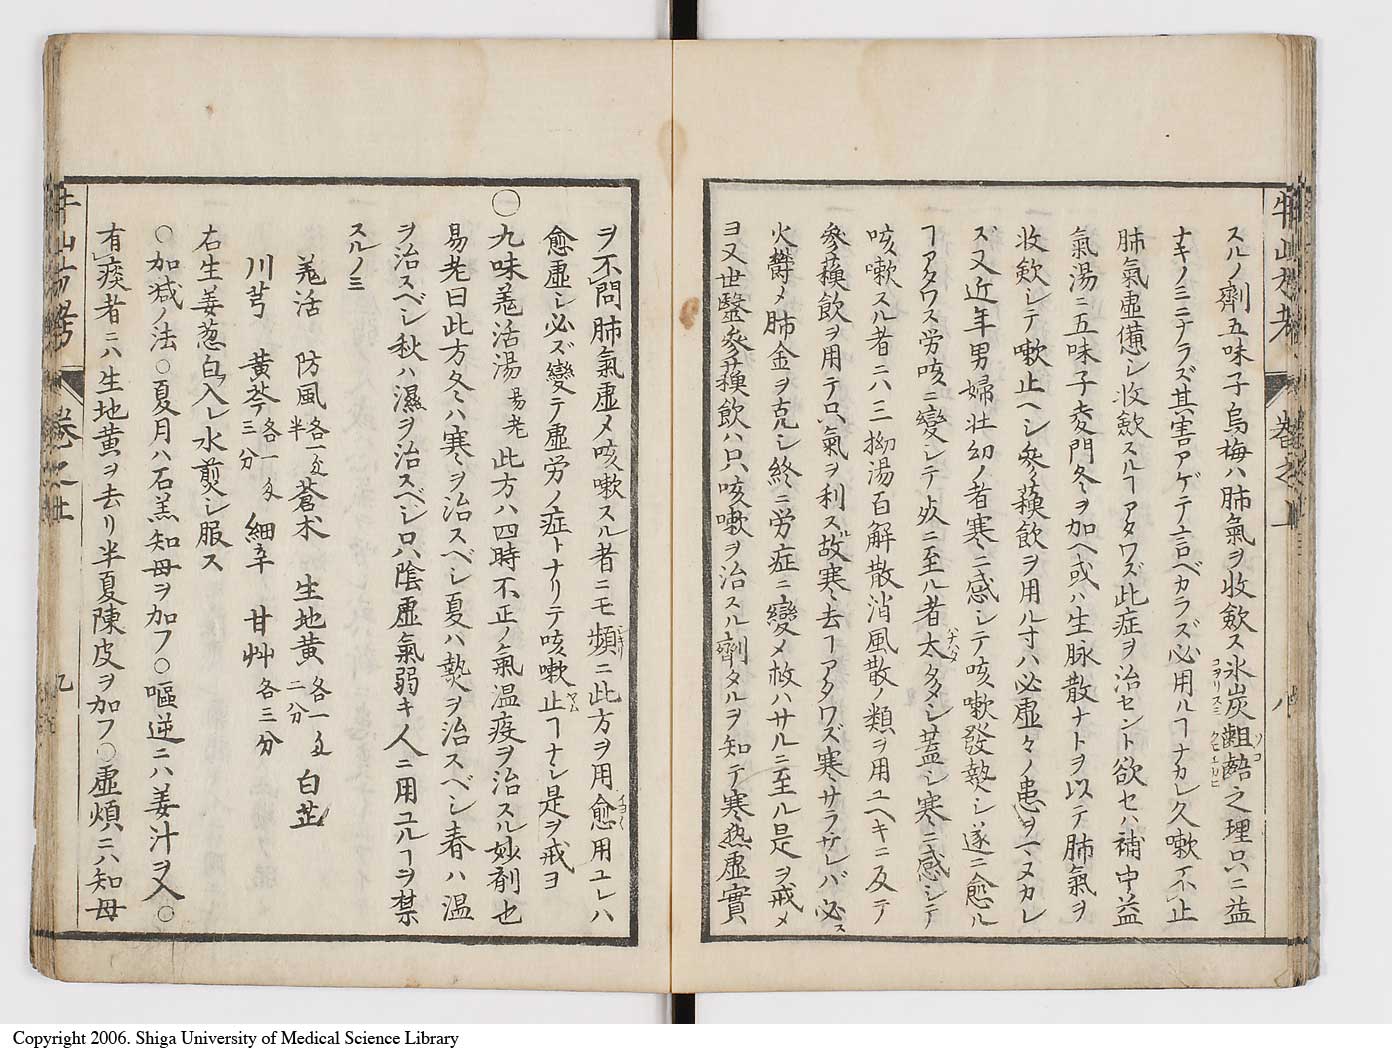 牛山方考 卷之上 八
スルノ劑五味子烏梅ハ肺氣ヲ收歛ス氷炭齟齬之理只ニ益
ナキノミニナラズ其害アゲテ言ベカラズ必用ルヿナカレ久嗽不止
肺氣虚憊シ收歛スルヿアタワズ此症ヲ治セント欲セハ補中益
氣湯ニ五味子麥門冬ヲ加ヘ或ハ生脉散ナトヲ以テ肺氣ヲ
收歛シテ嗽止ヘシ參蘓飲ヲ用ル寸ハ必虚々ノ患ヲマヌカレ
ズ又近年男婦壮幼ノ者寒ニ感シテ咳嗽發熱シ遂ニ愈ル
ヿアタワス労咳ニ變シテ死ニ至ル者太タ多シ蓋シ寒ニ感シテ
咳嗽スル者ニハ三拗湯百解散消風散ノ類ヲ用ユヘキニ反テ
參蘓飲ヲ用テ只氣ヲ利ス故寒去ヿアタワズ寒サラザレバ必ス
火欝メ肺金ヲ克シ終ニ労症ニ變メ救ハサルニ至ル是ヲ戒メ
ヨ又世醫參蘓飲ハ只咳嗽ヲ治スル劑タルヲ知テ寒熱虚實
ヲ不問肺氣虚メ咳嗽スル者ニモ頻ニ此方ヲ用愈用ユレハ
愈虚シ必ズ變テ虚労ノ症トナリテ咳嗽止ヿナシ是ヲ戒ヨ
〇九味羗活湯 易老 此方ハ四時不正ノ氣温疫ヲ治スル妙劑也
易老曰此方冬ハ寒ヲ治スベシ夏ハ熱ヲ治スベシ春ハ温
ヲ治スベシ秋ハ濕ヲ治スベシ只陰虚氣弱キ人ニ用ユルヿヲ禁
スルノミ
羗活 防風 各一匁半 蒼朮 生地黄 各一匁二分 白芷
川芎 黄芩 各一匁三分 細辛 甘艸 各三分
右生姜葱白入レ水煎シ服ス
〇加減ノ法〇夏月ハ石羔知母ヲ加フ〇嘔逆ニハ姜汁ヲ入〇
有痰者ニハ生地黄ヲ去リ半夏陳皮ヲ加フ〇虚煩ニハ知母
牛山方考 卷之上 九
Copyright 2006. Shiga University of Medical Science Library